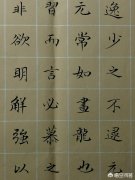 逸少之不
常如畫龍也
習而言必慕之
非欲明解強以